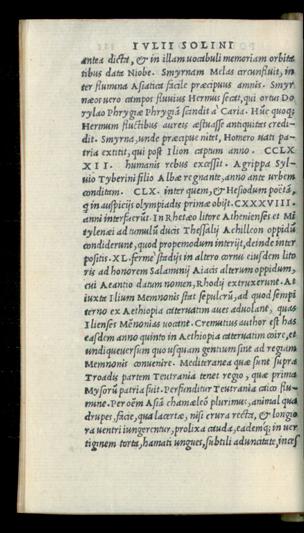 IVLII SOLINI
antea dicta, & in illam vocabuli memoriam orbita
tibus data Niobe. Smyrnam Melas circunfluit, in
ter flumina Asiatica facile præcipuus amnis. Smyr
næos vero campos fluvius Hermus secat, qui ortus Do
rylao Phrygiæ Phrygiā scindit a Caria. Hūc quoq;
Hermum fluctibus aureis æstuasse antiquitas credi-
dit. Smyrna, unde præcipue nitet, Homero vati pa-
tria extitit, qui post Ilion captum anno. CCLX
XII. humanis rebus excessit. Agrippa Syl-
vio Tyberini filio Albæ regnante, anno ante urbem
conditam. CLX. inter quem, & Hesiodum poetā,
q in auspicijs olympiadis primæ obijt. CXXXVIII.
anni interfuerūt. In Rhetæo litore Athenienses et Mi
tylenæi ad tumulū ducis Thessalij Achilleon oppidū
condiderunt, quod propemodum interijt, deinde inter
positis. XL. fermè stadijs in altero cornu eiusdem lito
ris ad honorem Salaminij Aiacis alterum oppidum,
cui Aeantio datum nomen, Rhodij extruxerunt. At
iuxta Ilium Memnonis stat sepulcrū, ad quod sempi
terno ex Aethiopia catervatim aves advolant, quas
Ilienses Mēnonias vocant. Cremutius author est has
easdem anno quinto in Aethiopia catervatim coire, et
undiqueversum quo usquam gentium sint ad regiam
Memnonis convenire. Mediterranea quæ sunt supra
Troadis partem Teutrania tenet regio, quæ prima
Mysorū patria fuit. Perfunditur Teutrania caico flu-
mine. Per oēm Asiā chamæleō plurimus, animal qua
drupes, facie, qua lacertæ, nisi crura recta, & longio
ra ventri iungerentur, prolixa cauda, eademq; in ver
tiginem torta, hamati ungues, subtili aduncitate, inces